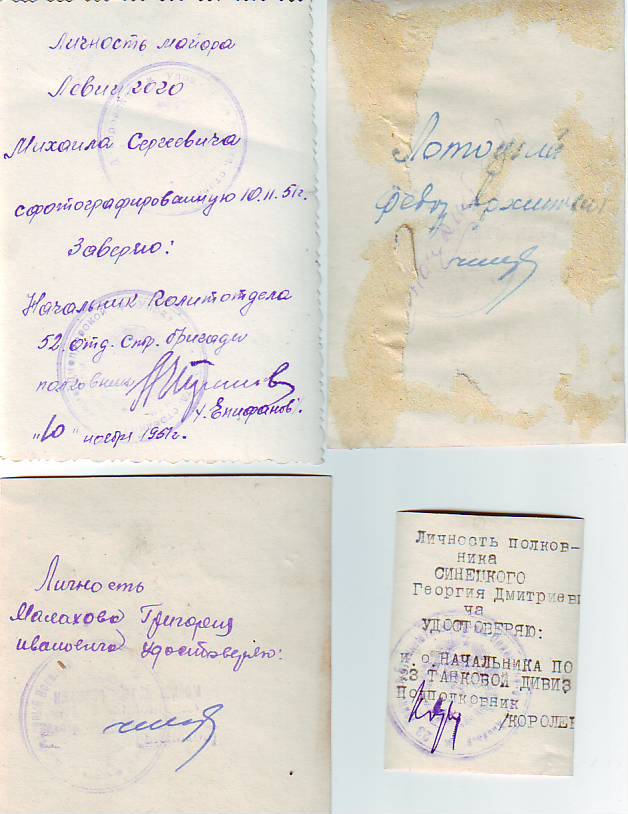 Личность майора
Левицкого
Михаила Сергеевича
сфотографированную 10.11.51г.
Заверяю:
Начальник Политотдела
52 отд. стр. бригады
полковник
/. Епифанов/.
"10" ноября 1951г.
Лотоцкий
Федор
Личность
Малахова Григория
Ивановича удостоверяю:
Личность полков-
ника
СИНЕЦКОГО
Георгия Дмитриеви
ча
УДОСТОВЕРЯЮ:
И.о.НАЧАЛЬНИКА ПО
23 ТАНКОВОЙ ДИВИЗ
Подполковник
/КОРОЛЕ